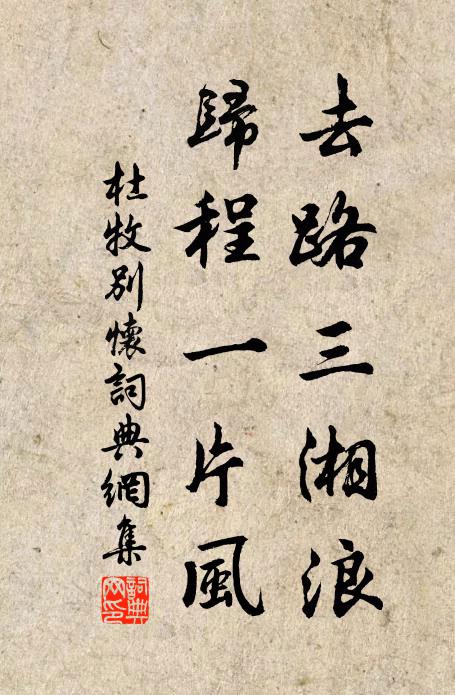 去路三湘浪
歸程一片風
杜牧別懷詞典網集
詞典網印